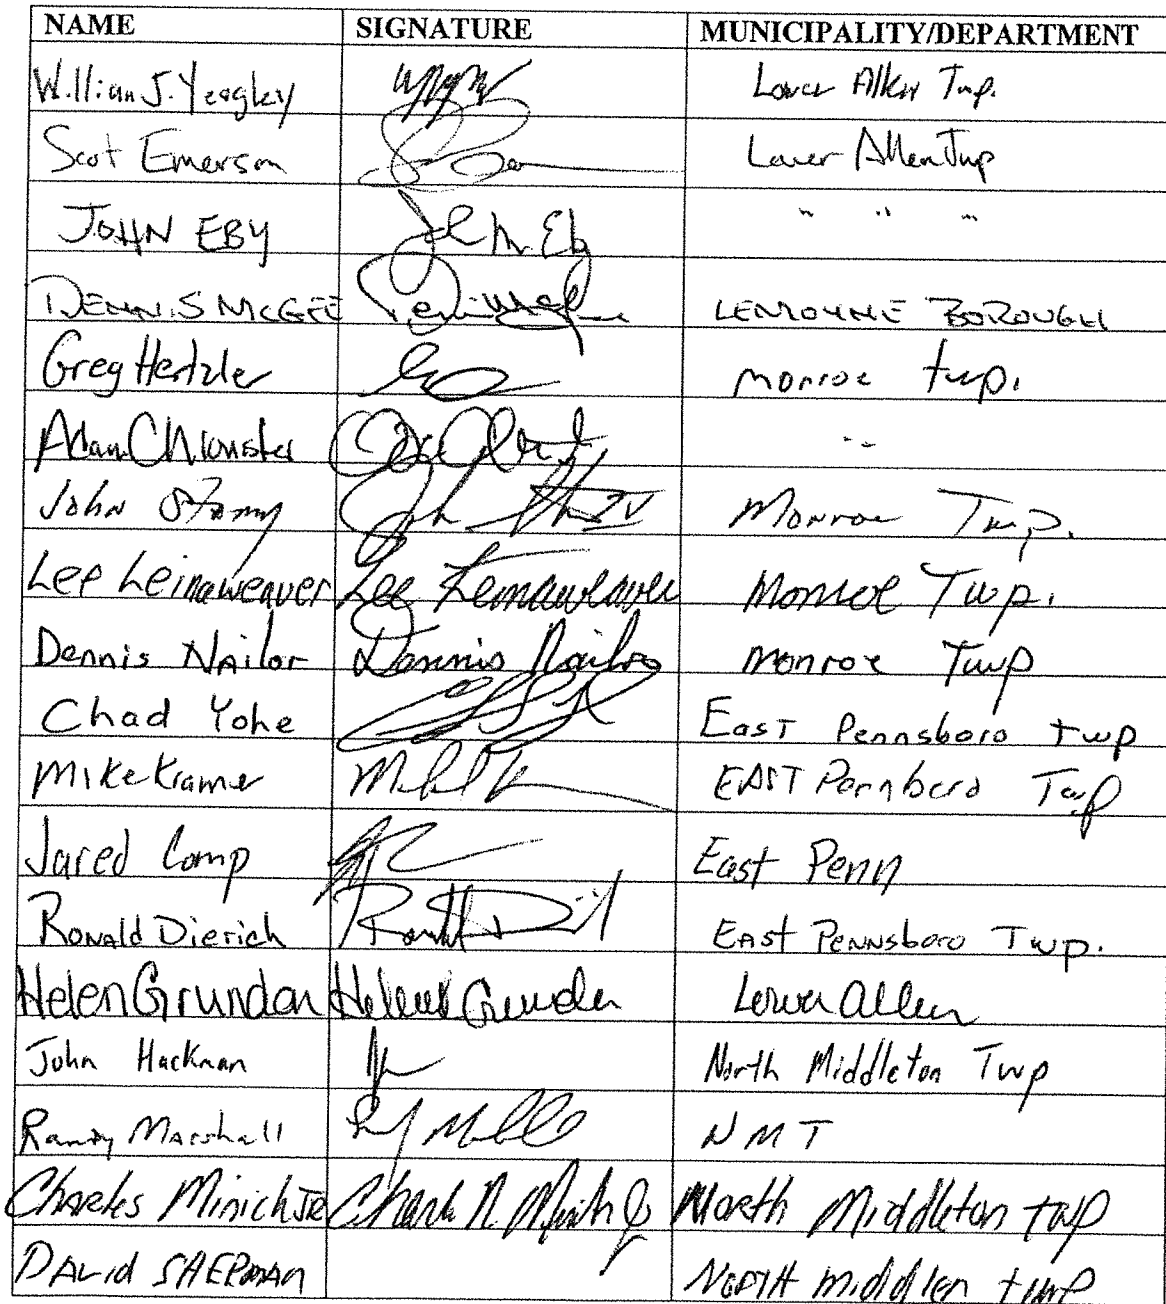 NAME SIGNATURE MUNICIPALITY/DEPARTMENT
William J. Yeagley Lower Allen Twp.
Scot Emerson Lower Allen Twp
JOHN EBY John Eby " " "
DENNIS MCGEE LEMOYNE BOROUGH
Greg Hertzler Monroe twp.
Adam " "
John Monroe Twp.
Lee Leinaweaver Lee Leinaweaver Monroe Twp.
Dennis Nailor Dennis Nailor Monroe Twp
Chad Yohe East Pennsboro twp
Mike Kramer EAST Pennboro Twp
Jared Comp East Penn
Ronald Dierich East Pennsboro Twp.
Helen Grundon Helen Grundon Lower Allen
John Hackman North Middleton Twp
Randy Marshall NMT
Charles Minich JR Charles N Minich Jr North Middleton twp
DAVid SHERMAN NORTH middleton twp